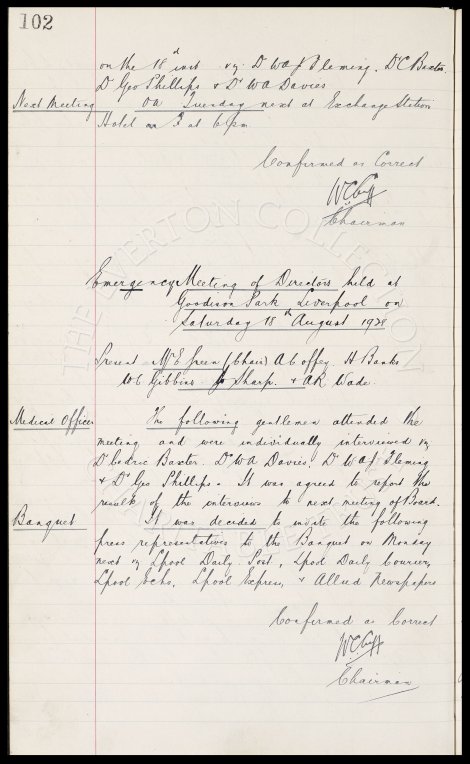 102
on the 18th inst vz. Dr W A J Fleming. Dr C Baxter.
Dr Geo Phillips & Dr W A Davies
Next Meeting on Tuesday next at Exchange Station
Hotel at 6 pm
Confirmed as Correct
W.C. Cuff
Chairman
Emergency Meeting of Directors held at
Goodison Park Liverpool on
Saturday 18th August 1928
Present Mr E Green (Chair) A Coffey H Banks
W C Gibbins J Sharp. & A R Wade
Medical Officer The following gentlemen attended the
meeting and were individually interviewed vz
Dr Cedric Baxter. Dr W A Davies. Dr W A J Fleming
& Dr Geo Phillips. It was agreed to report the
result of the interviews to next meeting of Board.
Banquet It was decided to invite the following
press representatives to the Banquet on Monday
next vz Lpool Daily Post, Lpool Daily Courier,
Lpool Echo, Lpool Express, & Allied Newspapers
Confirmed as Correct
W.C. Cuff
Chairman
THE EVERTON COLLECTION